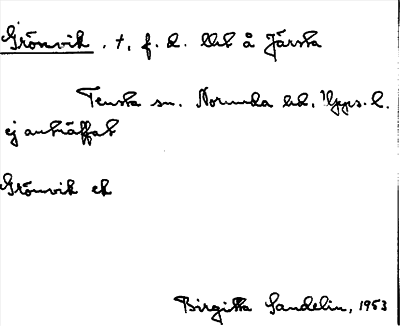 Grönvik . t, f. d. lht å Järsta
Tensta sn. Norunda hd, Upps. l.
ej anträffat
Grönvik ek
Birgitta Sandelin, 1953